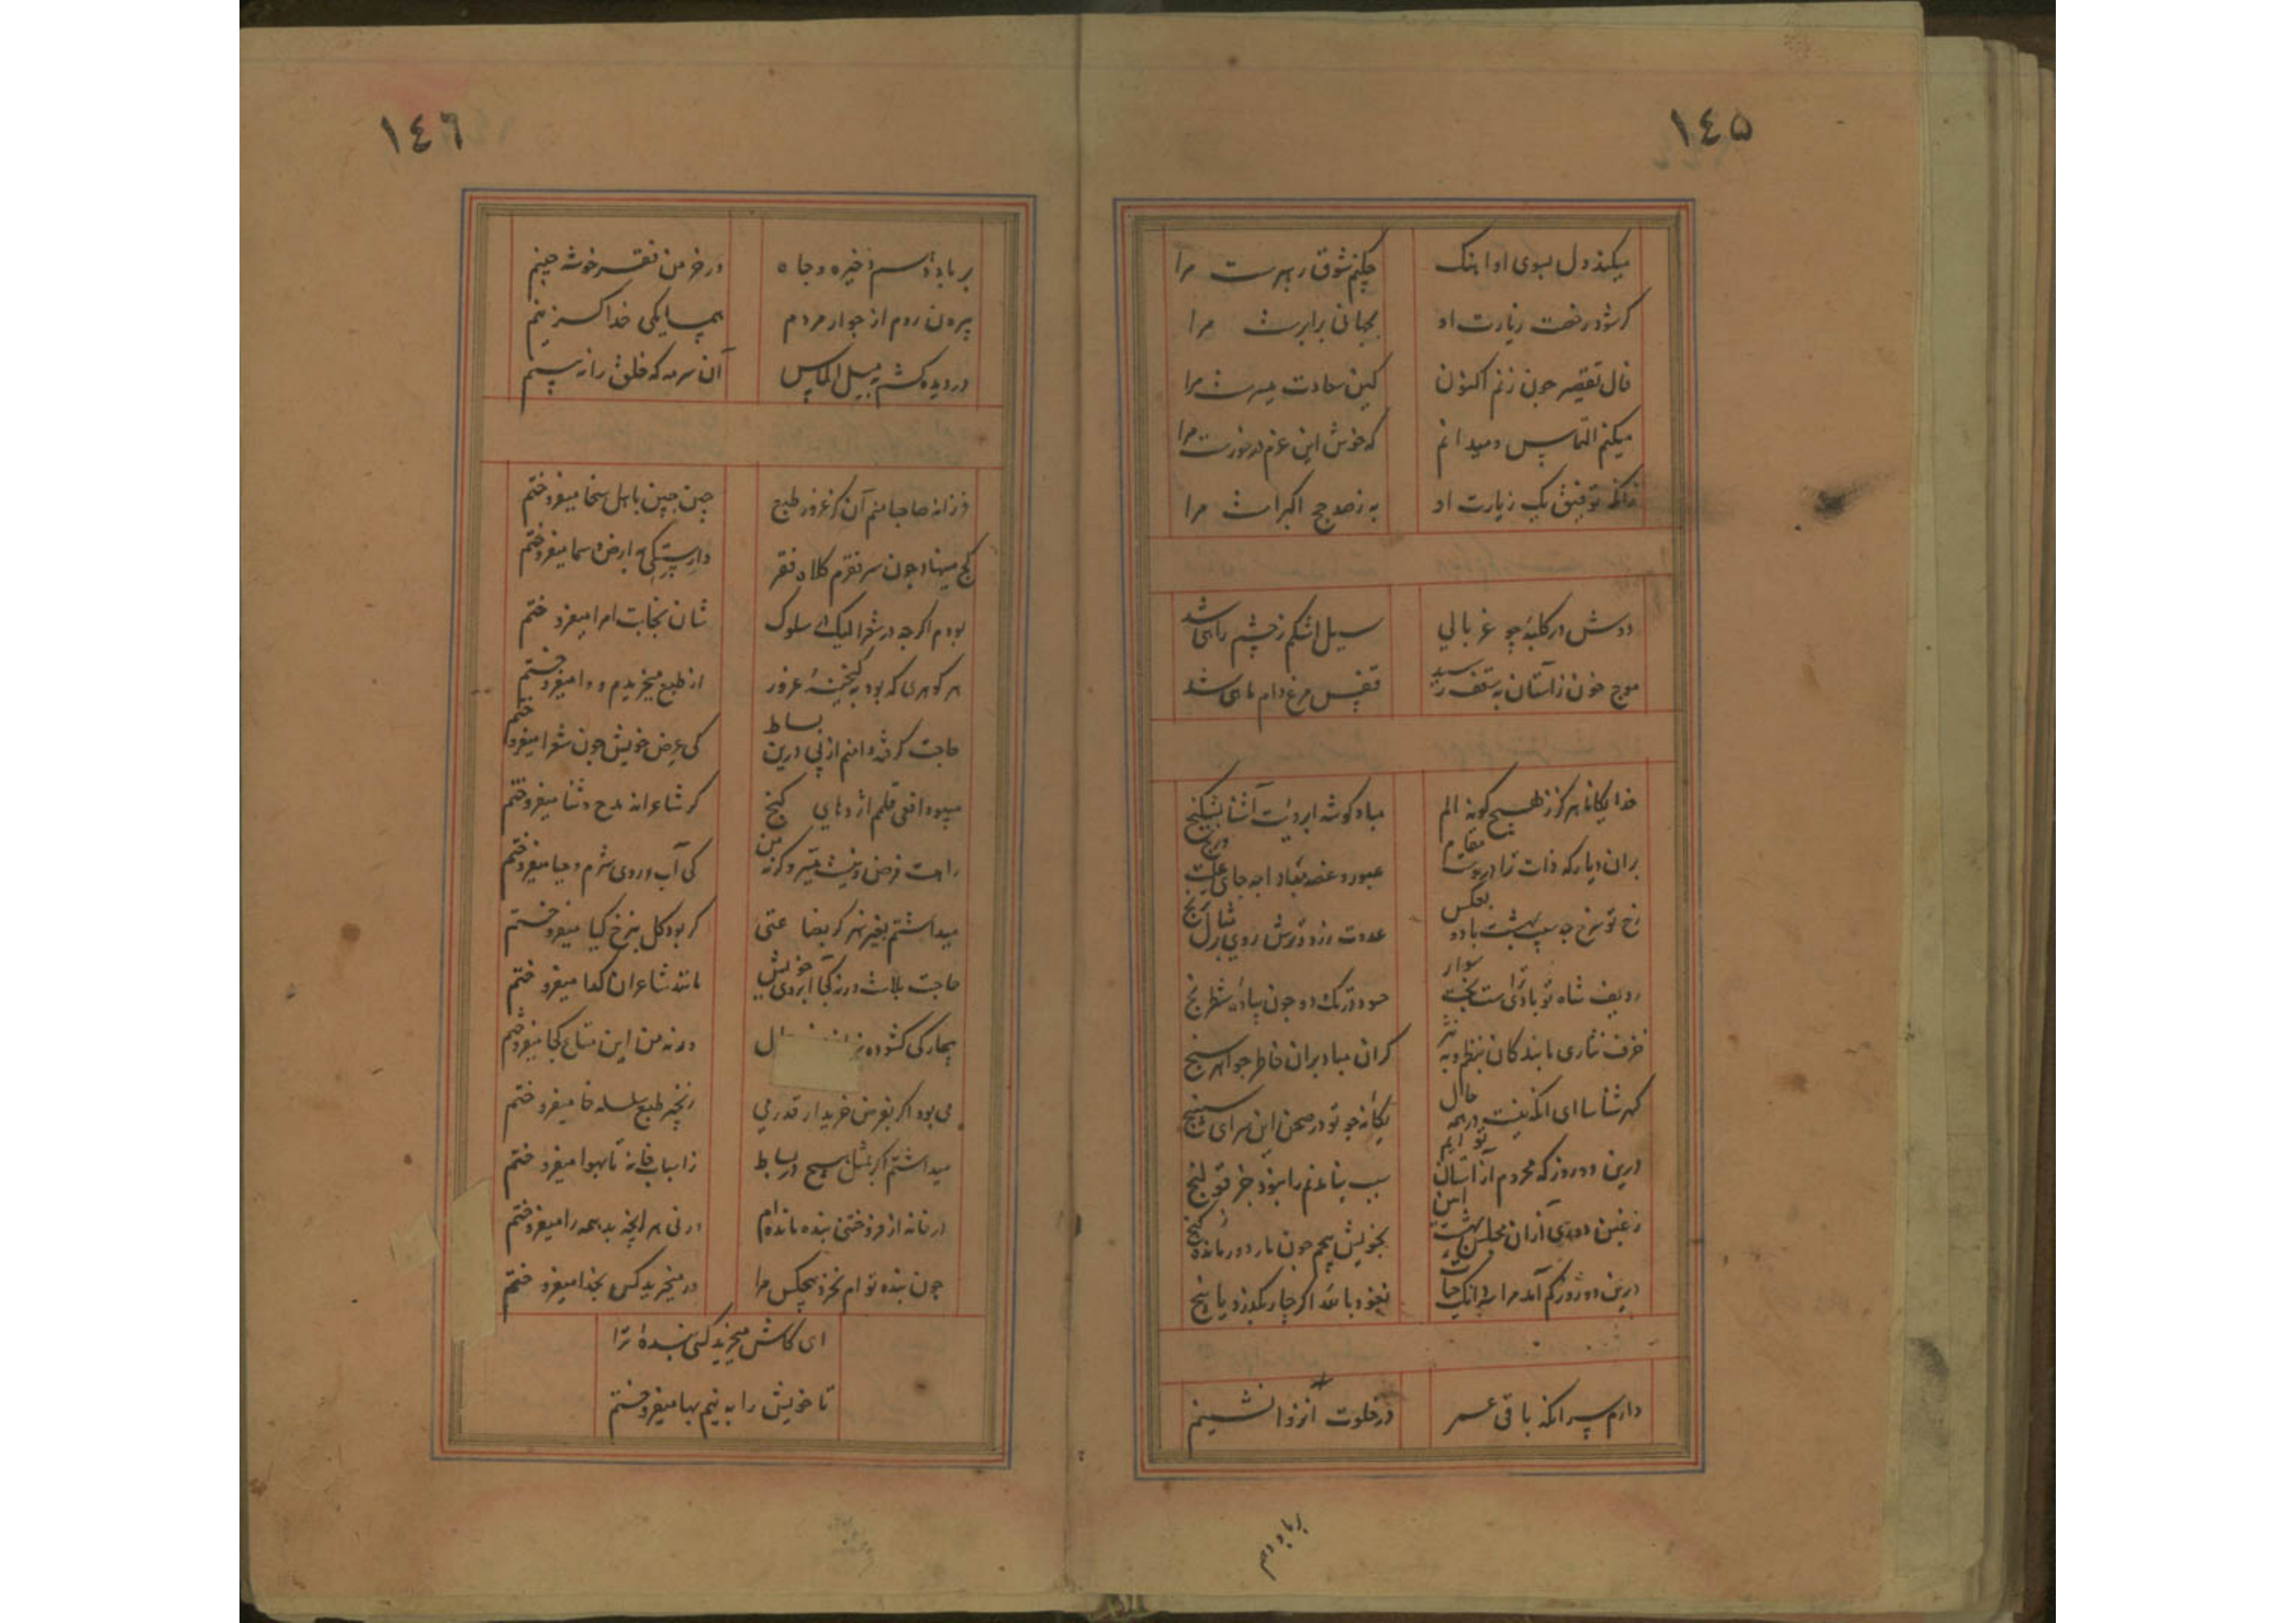 ١٤۵
میکند دل بسوی او اینک
چکنم شوق رهبرست مرا
کر شود رخصت زیارت او
بجهانی برابرست مرا
فال تقصیر چون زنم اکنون
کین سعادت میسرست مرا
میکنم التماس و میدانم
که خوش این عزم درخورست مرا
زانکه توفیق یک زیارت او
به ز صد حج اکبرست مرا
دوش در کلبهٔ چو غربالی
سیل اشکم ز چشم راهی شد
موج خون ز آستان به سقف رسید
قفس مرغ دام ماهی شد
خدایکانا هرکز ز هیچ کونه الم
مباد کوشه ابرویت آشنا بشکنج
بران دیار که ذات ترا دروست مقام
عبور و غصه مباد
رخ تو سرخ چه سیب بهشت باد و بعکس
عدوت زرد و ترش روی
ردیف شاه تو بادا
حسود ترک ده چون پیاده شطرنج
خزف نثاری ما بندکان بنظم و به نثر
کران مباد بران خاطر جواهر سنج
کهر شناسا ای انکه نیست در همه حال
یکانه چو تو در صحن این سرای سپنج
درین دو روز که محروم از آستان تو ایم
سبب بنا عدنم را نبود جز قولنج
ز غبن دوری ازان مجلس بهشت آیین
بخویش پیچم چون مار دور مانده ز کنج
درین دو روز کم آمد مرا
نعوذ بالله اکر چار بکذرد یا پنج
دارم سر انکه باقی عمر
در خلوت انزوا نشینم
بر باد دهم
١٤٦
بر باد دهم ذخیره و جاه
در خرمن فقر خوشه چینم
بیرون روم از جوار مردم
همسایکی خدا کزینم
در دیده کشم به میل الماس
آن سرمه که خلق را نه بینم
فرزانه صاحبا منم آن کز غرور طبع
چین جبین باهل سخا میفروختم
کج مینهاد چون سر فقرم کلاه فقر
وارستکی به ارض و سما میفروختم
بودم اکرچه در شعرا لیک در سلوک
شان نجابت امرا میفروختم
هر کوهری که بود به کنجینهٔ غرور
از طبع میخریدم و وا میفروختم
حاجت کرفته دامنم از پی درین بساط
کی عرض خویش چون شعرا میفروختم
میبود افعی قلمم اژدهای کنج
کر شاعرانه مدح و ثنا میفروختم
راهت قرض و نیت
کی آب روی شرم و حیا میفروختم
میداشتم بغیر هنر کر بضاعتی
کر بود کل بنرخ کیا میفروختم
حاجت بلاست ورنه کجا آبروی خویش
مانند شاعران کدا میفروختم
بیچارکی کشوده
ورنه من این متاع کجا میفروختم
می بود اکر بفرض خریدار قدر می
زنجیر طبع سلسله خا میفروختم
میداشتم اکر بمثل هیچ در بساط
ز اسباب خانه تا بهوا میفروختم
در خانه از فروختنی بنده مانده ام
ورنی هر آنچه بد همه را میفروختم
چون بنده تو ام نخرد هیچکس مرا
ور میخرید کس بخدا میفروختم
ای کاش میخرید کسی بندهٔ ترا
تا خویش را به نیم بها میفروختم